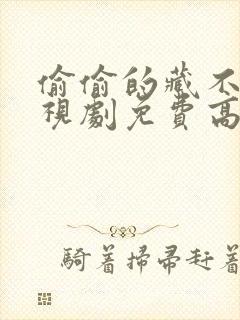 偷偷的藏不
視劇免費高
騎着掃帚赶着